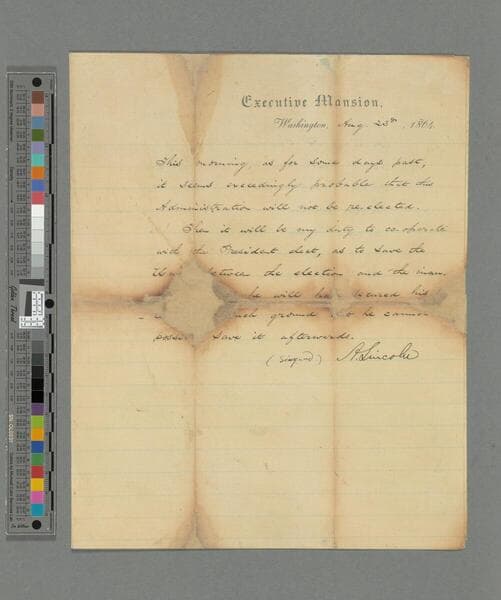 Executive Mansion,
Washington, Aug. 23rd, 1864
This morning, as for some days past,
it seems exceedingly probable that this
Administration will not be re-elected.
Then it will be my duty to co-operate
with the President elect, as to save the
between the election and the inau-
he will have secured his
such ground he cannot
save it afterwards.
(Signed) A. Lincoln